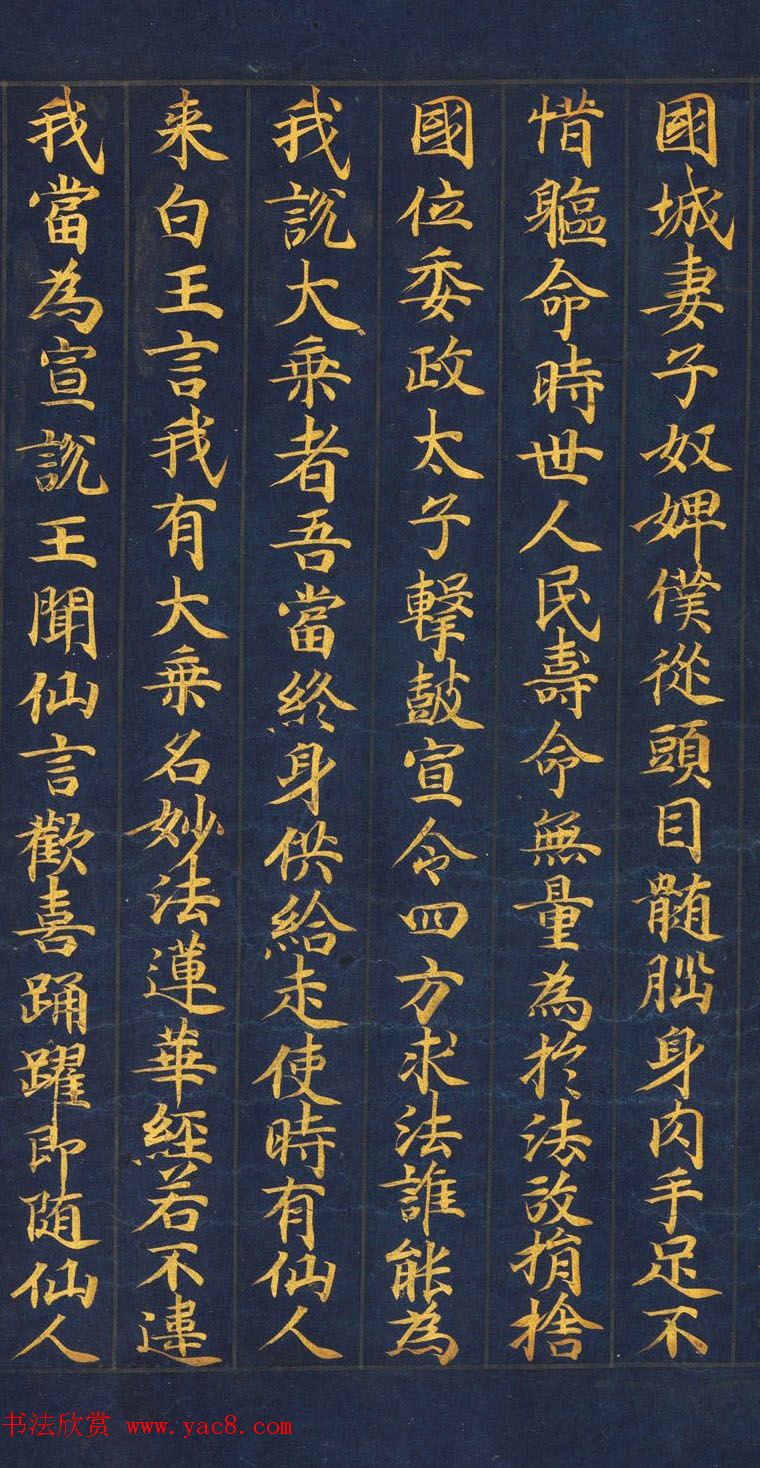 國城妻子奴婢僕從頭目髄𦛁身肉手足不
惜軀命時世人民壽命無量為於法故捐捨
國位委政太子擊鼓宣令四方求法誰能為
我說大乘者吾當終身供給走使時有仙人
来白王言我有大乘名妙法蓮華經若不違
我當為宣說王聞仙言歡喜踊躍即随仙人
书法欣赏 www.yac8.com